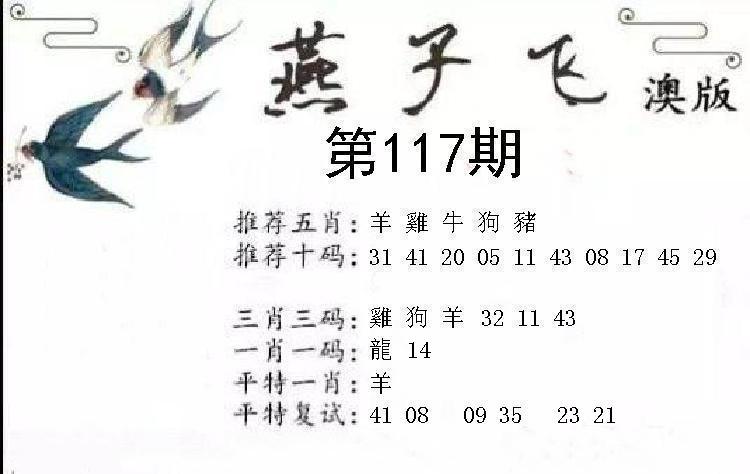 燕子飞 澳版
第117期
推荐五肖: 羊 雞 牛 狗 豬
推荐十码: 31 41 20 05 11 43 08 17 45 29
三肖三码: 雞 狗 羊 32 11 43
一肖一码: 龍 14
平特一肖: 羊
平特复试: 41 08 09 35 23 21